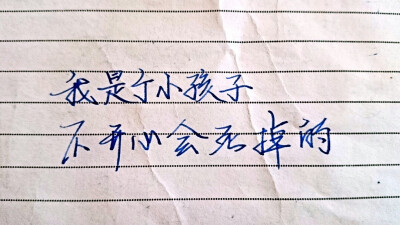 我是个小孩子
不开心会死掉的